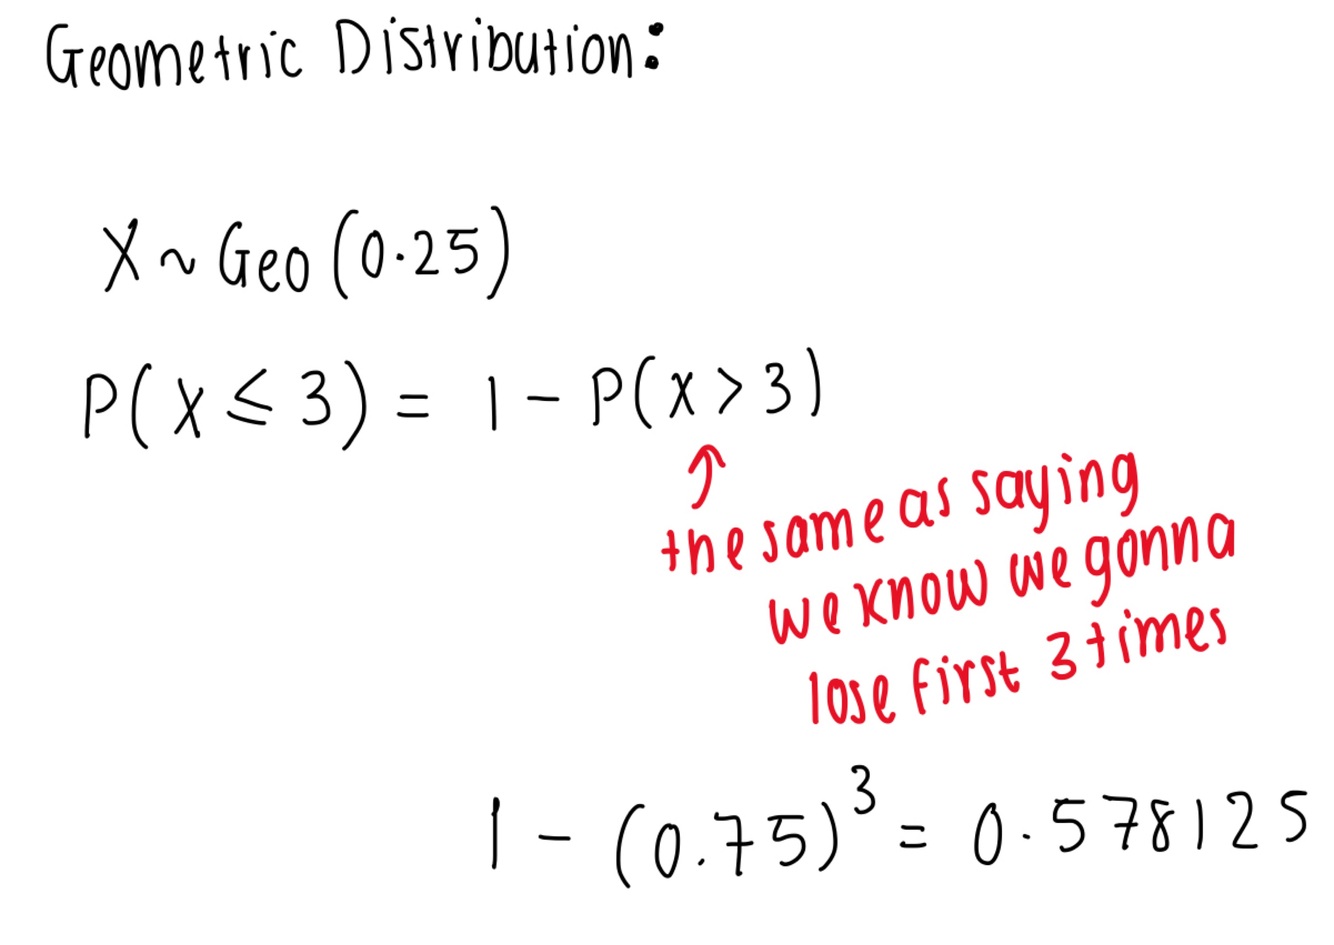 Geometric Distribution:
X ~ Geo (0.25)
P( X ≤ 3) = 1 - P(X > 3)
the same as saying
we know we gonna
lose first 3 times
1 - (0.75)³ = 0.578125